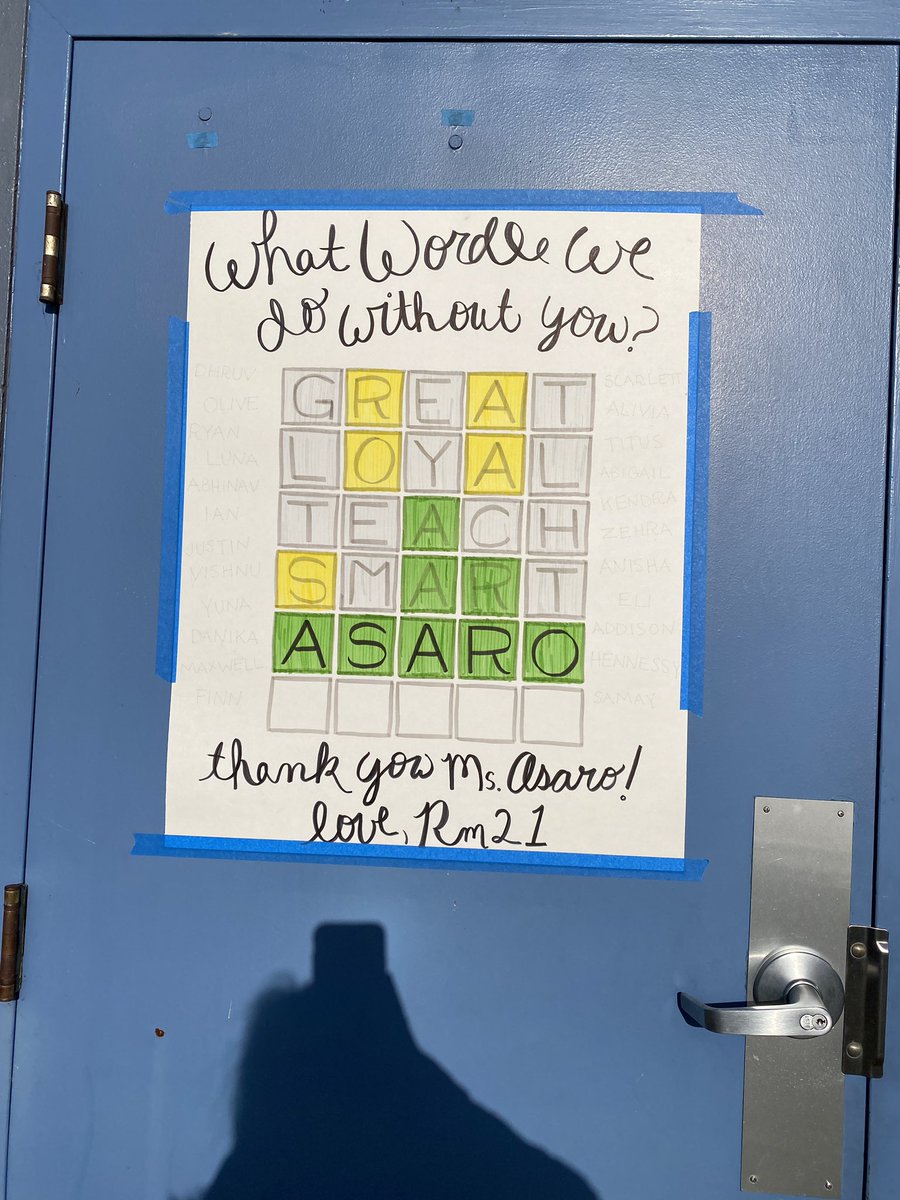 What Wordle we
do without you?
DHRUV
OLIVE
RYAN
LUNA
ABHINAV
IAN
JUSTIN
VISHNU
YUNA
DANIKA
MAXWELL
FINN
GREAT
LOYAL
TEACH
SMART
ASARO
SCARLETT
ALIVIA
TITUS
ABIGAIL
KENDRA
ZEHRA
ANISHA
ELI
ADDISON
HENNESSY
SAMAY
thank you Ms. Asaro!
love, Rm21